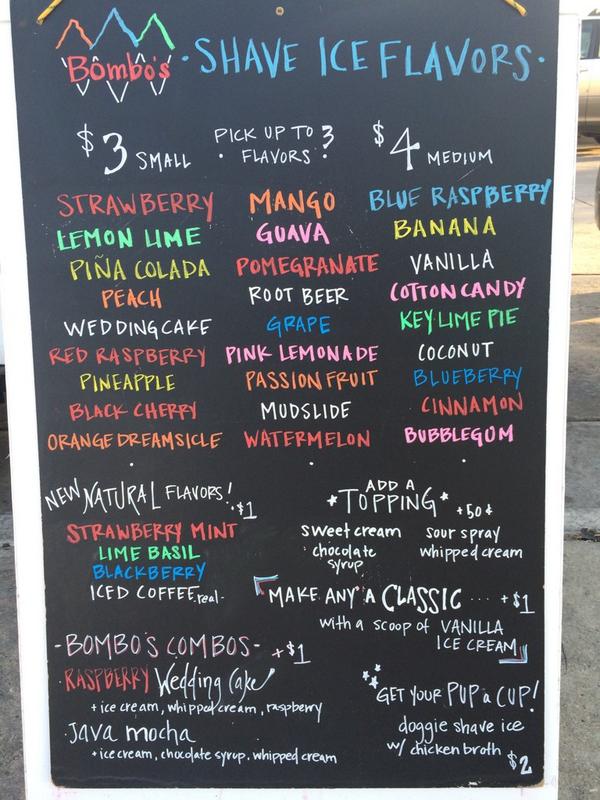 Bombo's · SHAVE ICE FLAVORS ·
$3 SMALL
· PICK UP TO 3 FLAVORS ·
$4 MEDIUM
STRAWBERRY MANGO BLUE RASPBERRY
LEMON LIME GUAVA BANANA
PIÑA COLADA POMEGRANATE VANILLA
PEACH ROOT BEER COTTON CANDY
WEDDING CAKE GRAPE KEY LIME PIE
RED RASPBERRY PINK LEMONADE COCONUT
PINEAPPLE PASSION FRUIT BLUEBERRY
BLACK CHERRY MUDSLIDE CINNAMON
ORANGE DREAMSICLE WATERMELON BUBBLEGUM
NEW NATURAL FLAVORS! +$1
STRAWBERRY MINT
LIME BASIL
BLACKBERRY
ICED COFFEE -real-
ADD A
*TOPPING* +50¢
sweet cream sour spray
chocolate syrup whipped cream
MAKE ANY A CLASSIC .... +$1
with a scoop of VANILLA
ICE CREAM
-BOMBO'S COMBOS- +$1
RASPBERRY Wedding Cake
+ ice cream, whipped cream, raspberry
Java mocha
+ ice cream, chocolate syrup, whipped cream
GET YOUR PUP a CUP!
doggie shave ice
w/ chicken broth $2